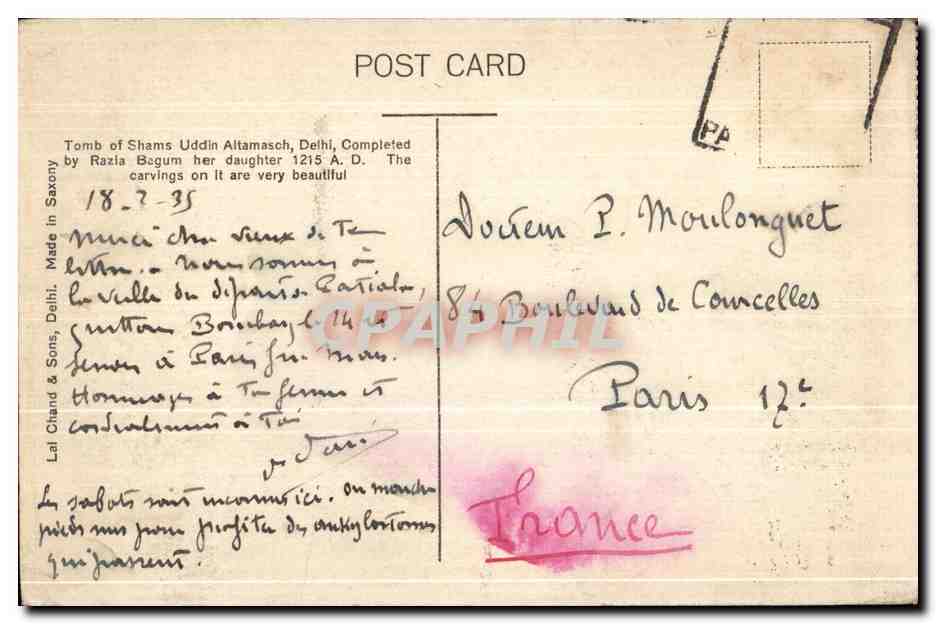 POST CARD
PA
Tomb of Shams Uddin Altamasch, Delhi, Completed
by Razia Begum her daughter 1215 A. D. The
carvings on it are very beautiful
Lal Chand & Sons, Delhi. Made in Saxony
18_2_35
Merci cher vieux de Ta
lettre. Nous sommes à
la veille du départ de Patiala,
quittons Bombay le 14 et
serons à Paris fin Mars.
Hommages à Ta femme et
cordialement à Toi
Les sabots sont inconnus ici. On marche
pieds nus pour profiter des ankylostomes
qui passent.
Docteur P. Moulonguet
84 Boulevard de Courcelles
Paris 17e
France
CPAPHIL